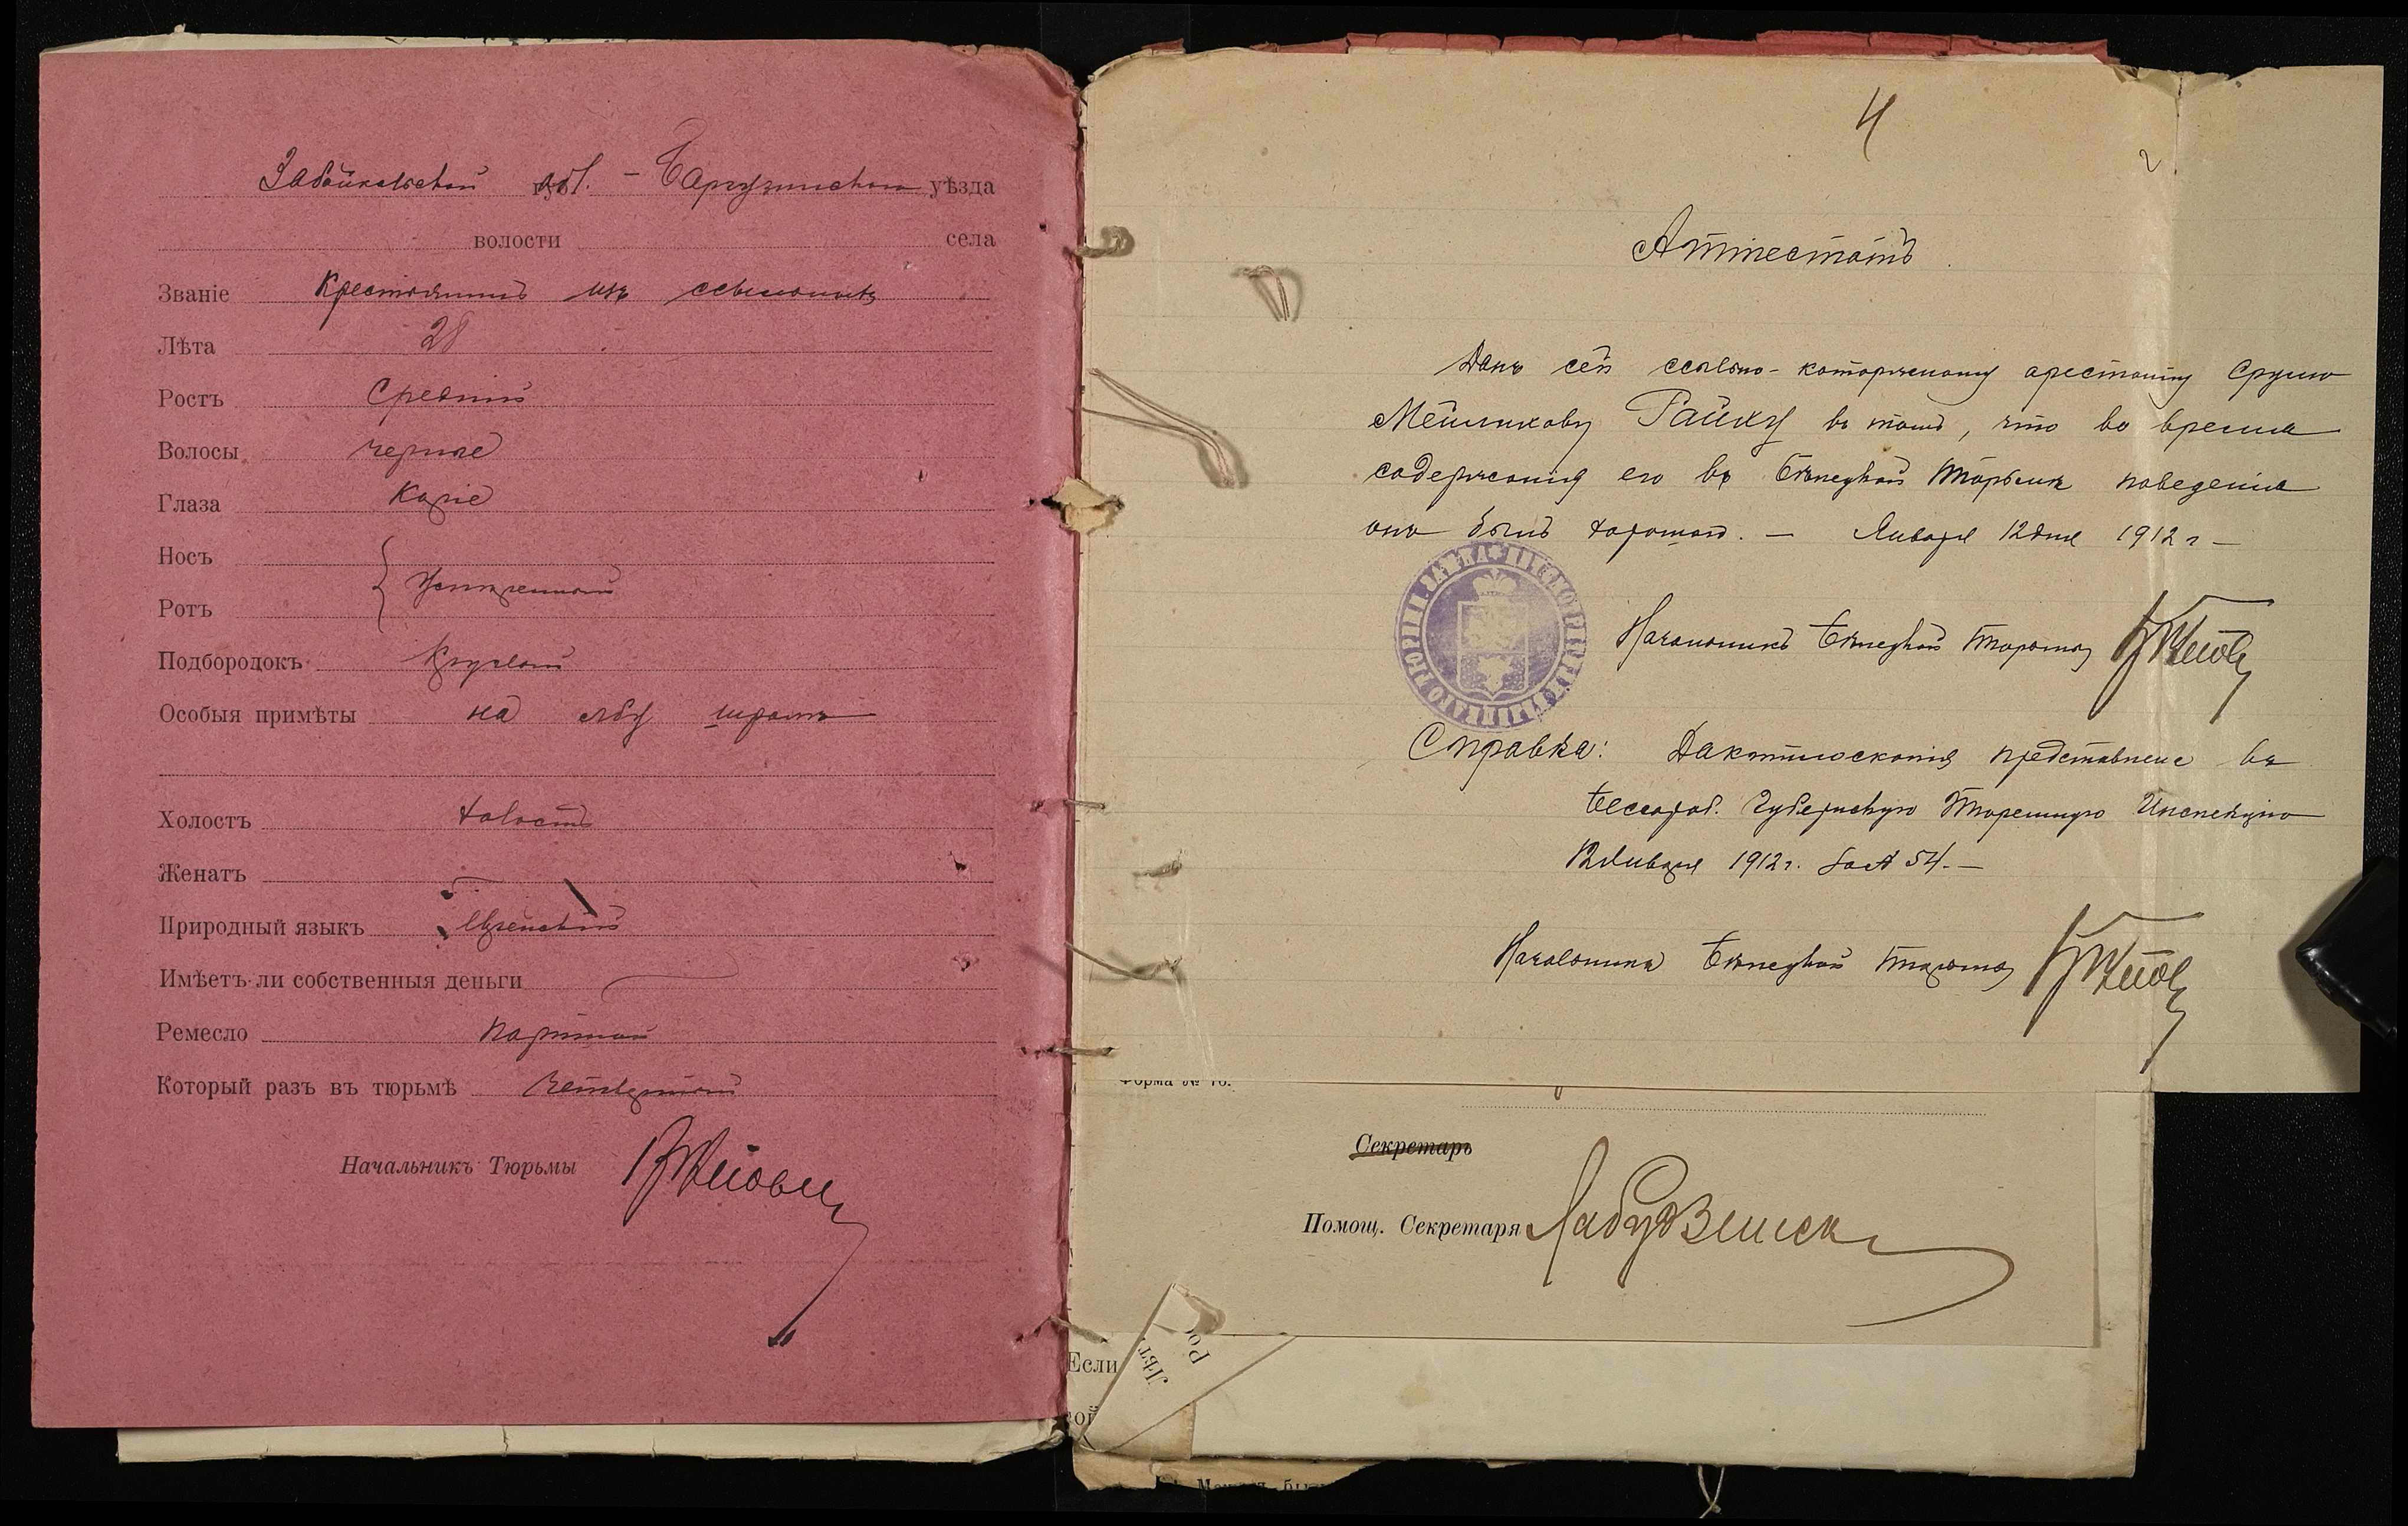 Забайкальской обл. – Баргузинскаго уѣзда
волости села
Званіе Крестьянинъ изъ ссыльныхъ
Лѣта 28
Ростъ Средній
Волосы черные
Глаза Каріе
Носъ
Умѣренный
Ротъ
Подбородокъ Круглый
Особыя примѣты на лбу шрамъ
Холостъ холостъ
Женатъ
Природный языкъ Еврейскій
Имѣетъ-ли собственныя деньги
Ремесло Портной
Который разъ въ тюрьмѣ четвертый
Начальникъ Тюрьмы
4
2
Аттестатъ
Данъ сей ссыльно-каторжному арестанту Срулю
Мейликову Райху въ томъ, что во время
содержанія его въ Бѣлецкой тюрьмѣ поведенія
онъ былъ хорошаго. — Января 12 дня 1912 г —
Начальникъ Бѣлецкой тюрьмы
Справка: Дактилоскопія представлена въ
Бессараб. Губернскую Тюремную Инспекцію
12 Января 1912 г. за № 54. —
Начальникъ Бѣлецкой тюрьмы
Форма № 16.
Секретарь
Помощ. Секретаря
Если
Лѣт
Рос